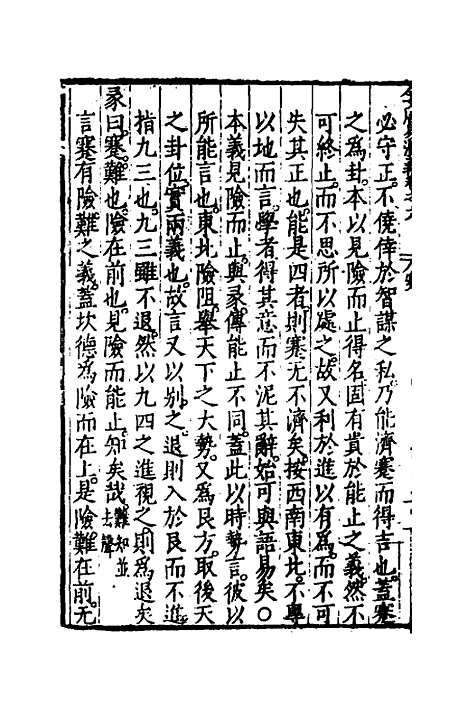 必守正。不僥倖於智謀之私乃能濟蹇而得吉也。蓋蹇
之為卦。本以見險而止得名。固有貴於能止之義。然不
可終止。而不思所以處之。故又利於進以有為。而不可
失其正也。能是四者。則蹇无不濟矣。按西南東北。不專
以地而言。學者得其意而不泥其辭。始可與語易矣○
本義見險而止。與彖傳能止不同。蓋此以時勢言。彼以
所能言也。東北險阻。舉天下之大勢。又為艮方。取後天
之卦位。實兩義也。故言又以別之。退則入於艮而不進。
指九三也。九三雖不退。然以九四之進視之。則為退矣
彖曰。蹇。難也。險在前也。見險而能止。知矣哉。難知並去聲
言蹇有險難之義。蓋坎德為險而在上。是險難在前。无